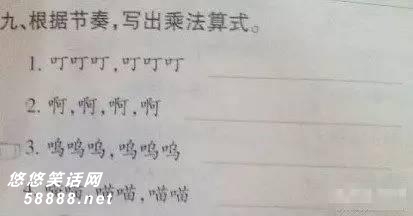 九、根据节奏,写出乘法算式。
1. 叮叮叮,叮叮叮
2. 啊,啊,啊,啊
3. 呜呜呜,呜呜呜
喵喵,喵喵
悠悠笑话网
58888.net